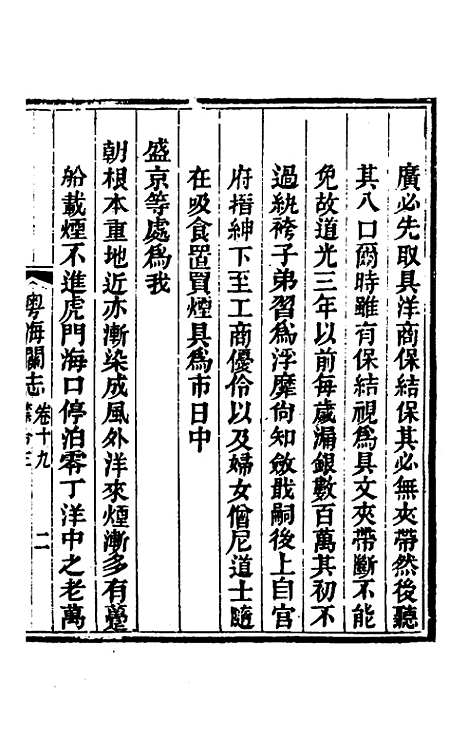 廣必先取具洋商保結保其必無夾帶然後聽
其入口爾時雖有保結視爲具文夾帶斷不能
免故道光三年以前每歲漏銀數百萬其初不
過紈袴子弟習爲浮靡尙知斂戢嗣後上自官
府搢紳下至工商優伶以及婦女僧尼道士隨
在吸食置買煙具爲市日中
盛京等處爲我
朝根本重地近亦漸染成風外洋來煙漸多有躉
船載煙不進虎門海口停泊零丁洋中之老萬
粵海關志 卷十九 禁令三 二